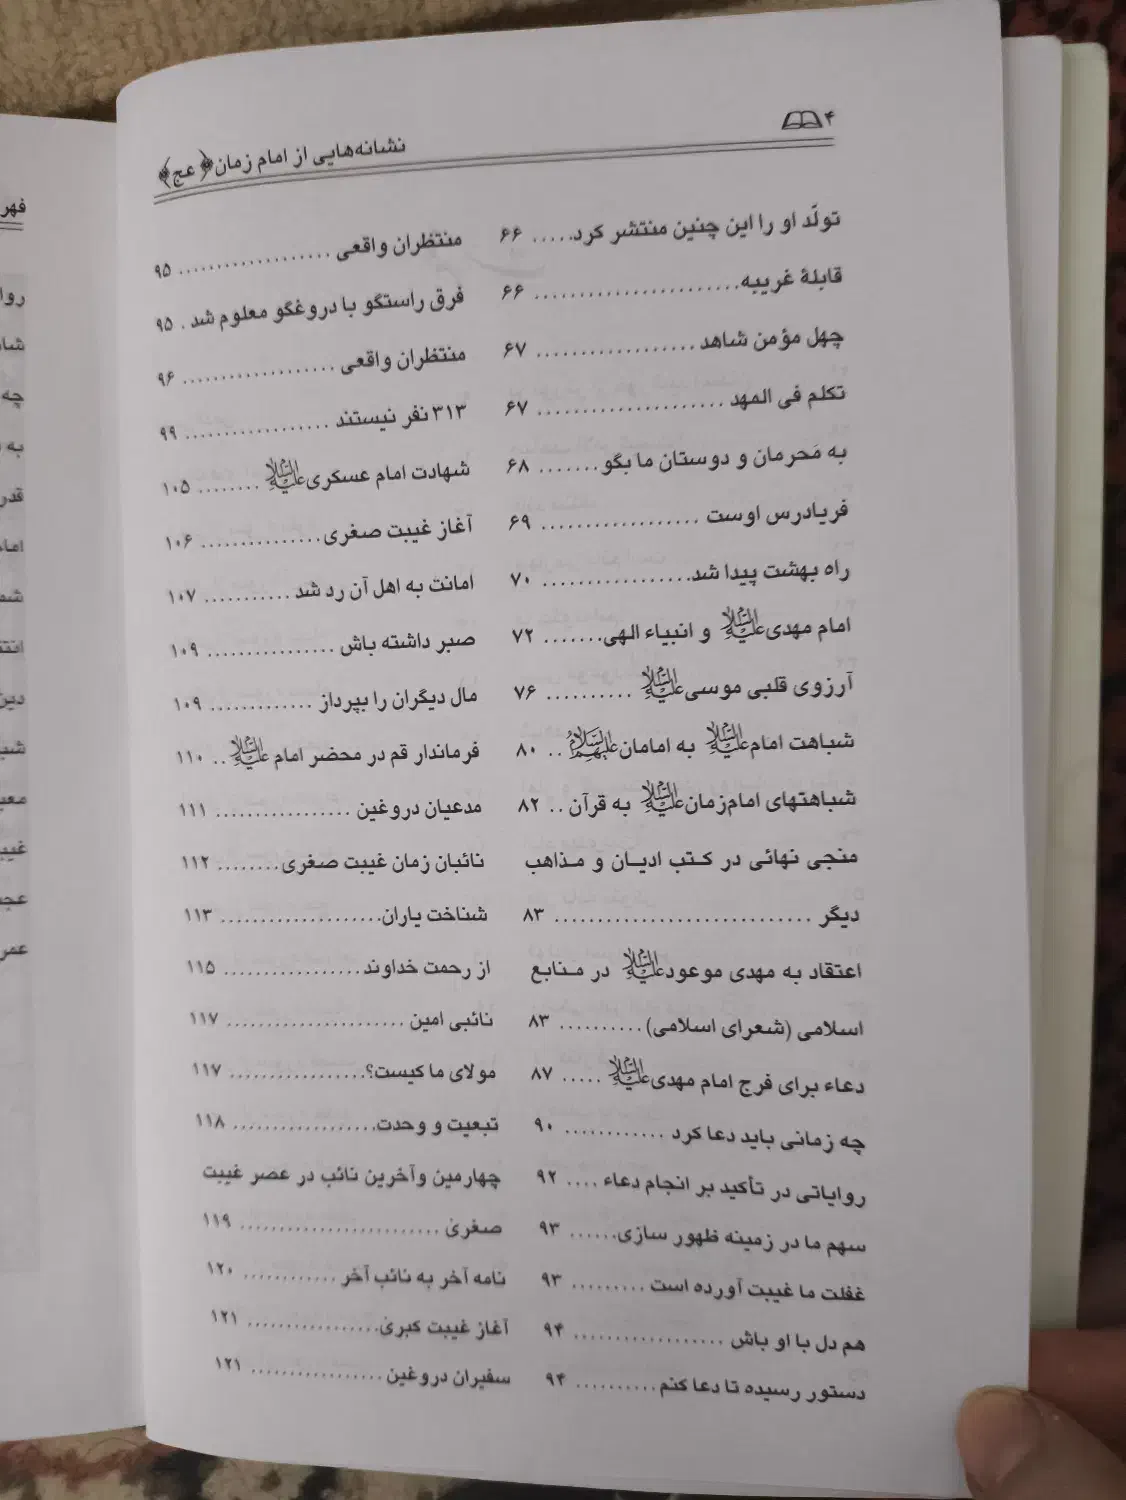 ۴
نشانه‌هایی از امام زمان﴿عج﴾
تولّد او را این چنین منتشر کرد..... ۶۶
قابلهٔ غریبه....................... ۶۶
چهل مؤمن شاهد .................. ۶۷
تکلم فی المهد ..................... ۶۷
به مَحرمان و دوستان ما بگو....... ۶۸
فریادرس اوست .................. ۶۹
راه بهشت پیدا شد................. ۷۰
امام مهدی علیه‌السلام و انبیاء الهی....... ۷۲
آرزوی قلبی موسی علیه‌السلام .......... ۷۶
شباهت امام علیه‌السلام به امامان علیهم‌السلام .. ۸۰
شباهتهای امام‌زمان علیه‌السلام به قرآن .. ۸۲
منجی نهائی در کتب ادیان و مذاهب
دیگر ............................. ۸۳
اعتقاد به مهدی موعود علیه‌السلام در منابع
اسلامی (شعرای اسلامی) .......... ۸۳
دعاء برای فرج امام مهدی علیه‌السلام ..... ۸۷
چه زمانی باید دعا کرد ............ ۹۰
روایاتی در تأکید بر انجام دعاء .... ۹۲
سهم ما در زمینه ظهور سازی...... ۹۳
غفلت ما غیبت آورده است ......... ۹۳
هم دل با او باش .................. ۹۴
دستور رسیده تا دعا کنم.......... ۹۴
منتظران واقعی .................... ۹۵
فرق راستگو با دروغگو معلوم شد . ۹۵
منتظران واقعی .................. ۹۶
۳۱۳ نفر نیستند ................. ۹۹
شهادت امام عسکری علیه‌السلام ........ ۱۰۵
آغاز غیبت صغری ................ ۱۰۶
امانت به اهل آن رد شد ........... ۱۰۷
صبر داشته باش ................. ۱۰۹
مال دیگران را بپرداز ............. ۱۰۹
فرماندار قم در محضر امام علیه‌السلام .. ۱۱۰
مدعیان دروغین ................. ۱۱۱
نائبان زمان غیبت صغری ........ ۱۱۲
شناخت یاران.................... ۱۱۳
از رحمت خداوند................. ۱۱۵
نائبی امین ...................... ۱۱۷
مولای ما کیست؟................. ۱۱۷
تبعیت و وحدت.................. ۱۱۸
چهارمین وآخرین نائب در عصر غیبت
صغری .......................... ۱۱۹
نامه آخر به نائب آخر ............ ۱۲۰
آغاز غیبت کبری................. ۱۲۱
سفیران دروغین ................. ۱۲۱